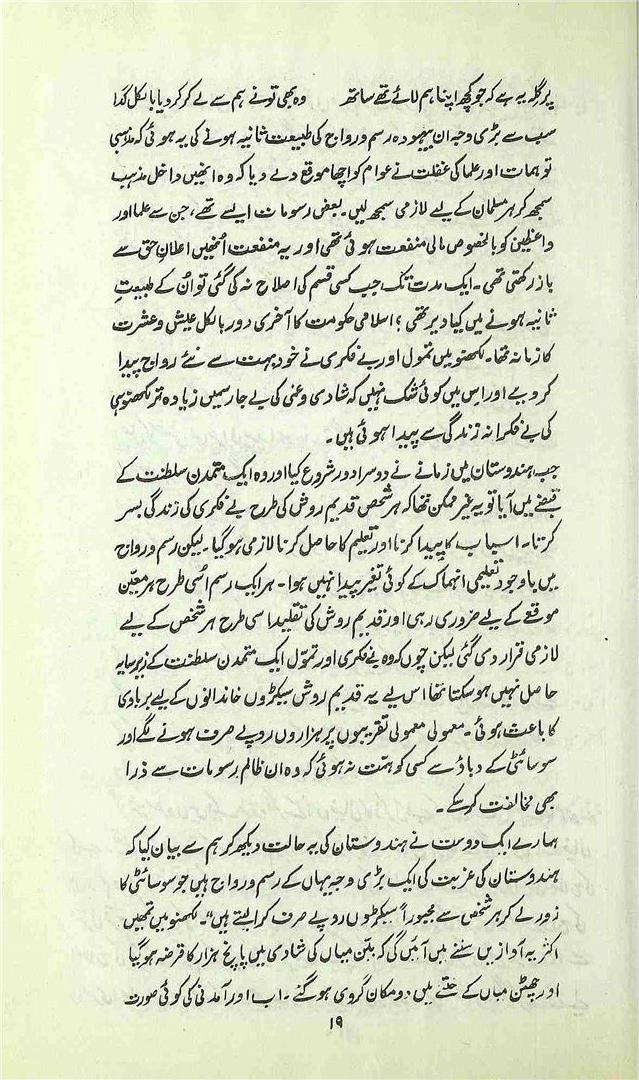 پر گلہ یہ ہے کہ جو کچھ اپنا ہم لائے تھے ساتھ وہ بھی تو نے ہم سے لے کر کر دیا بالکل گدا
سب سے بڑی وجہ ان بیہودہ رسم و رواج کی طبیعت ثانیہ ہونے کی یہ ہوئی کہ مذہبی
توہمات اور علما کی غفلت نے عوام کو اچھا موقع دے دیا کہ وہ انھیں داخل مذہب
سمجھ کر ہر مسلمان کے لیے لازمی سمجھ لیں۔ بعض رسومات ایسے تھے، جن سے علما اور
واعظین کو بالخصوص مالی منفعت ہوئی تھی اور یہ منفعت اُنھیں اعلانِ حق سے
باز رکھتی تھی۔ ایک مدت تک جب کسی قسم کی اصلاح نہ کی گئی تو اُن کے طبیعتِ
ثانیہ ہونے میں کیا دیر تھی؟ اسلامی حکومت کا آخری دور بالکل عیش و عشرت
کا زمانہ تھا۔ لکھنؤ میں تمول اور بے فکری نے خود بہت سے نئے رواج پیدا
کر دیے اور اس میں کوئی شک نہیں کہ شادی و غمی کی بے جا رسمیں زیادہ تر لکھنؤ ہی
کی بے فکرانہ زندگی سے پیدا ہوئی ہیں۔
جب ہندوستان میں زمانے نے دوسرا دور شروع کیا اور وہ ایک متمدن سلطنت کے
قبضے میں آیا تو یہ غیر ممکن تھا کہ ہر شخص قدیم روش کی طرح بے فکری کی زندگی بسر
کرتا۔ اسباب کا پیدا کرنا اور تعلیم کا حاصل کرنا لازمی ہو گیا۔ لیکن رسم و رواج
میں باوجود تعلیمی انہماک کے کوئی تغیر پیدا نہیں ہوا۔ ہر ایک رسم اُسی طرح ہر معیّن
موقعے کے لیے ضروری رہی اور قدیم روش کی تقلید اسی طرح ہر شخص کے لیے
لازمی قرار دی گئی لیکن چوں کہ وہ بے فکری اور تموّل ایک متمدن سلطنت کے زیر سایہ
حاصل نہیں ہو سکتا تھا اس لیے یہ قدیم روش سیکڑوں خاندانوں کے لیے بربادی
کا باعث ہوئی۔ معمولی معمولی تقریبوں پر ہزاروں روپے صرف ہونے لگے اور
سوسائٹی کے دباؤ سے کسی کو ہمت نہ ہوئی کہ وہ ان ظالم رسومات سے ذرا
بھی مخالفت کر سکے۔
ہمارے ایک دوست نے ہندوستان کی یہ حالت دیکھ کر ہم سے بیان کیا کہ
ہندوستان کی غربت کی ایک بڑی وجہ یہاں کے رسم و رواج ہیں جو سوسائٹی کا
زور لے کر ہر شخص سے مجبوراً سیکڑوں روپے صرف کرا لیتے ہیں"۔ لکھنؤ میں تمھیں
اکثر یہ آوازیں سننے میں آئیں گی کہ بنّن میاں کی شادی میں پانچ ہزار کا قرضہ ہو گیا
اور چھٹن میاں کے ختنے میں دو مکان گروی ہو گئے۔ اب اور آمدنی کی کوئی صورت
۱۹